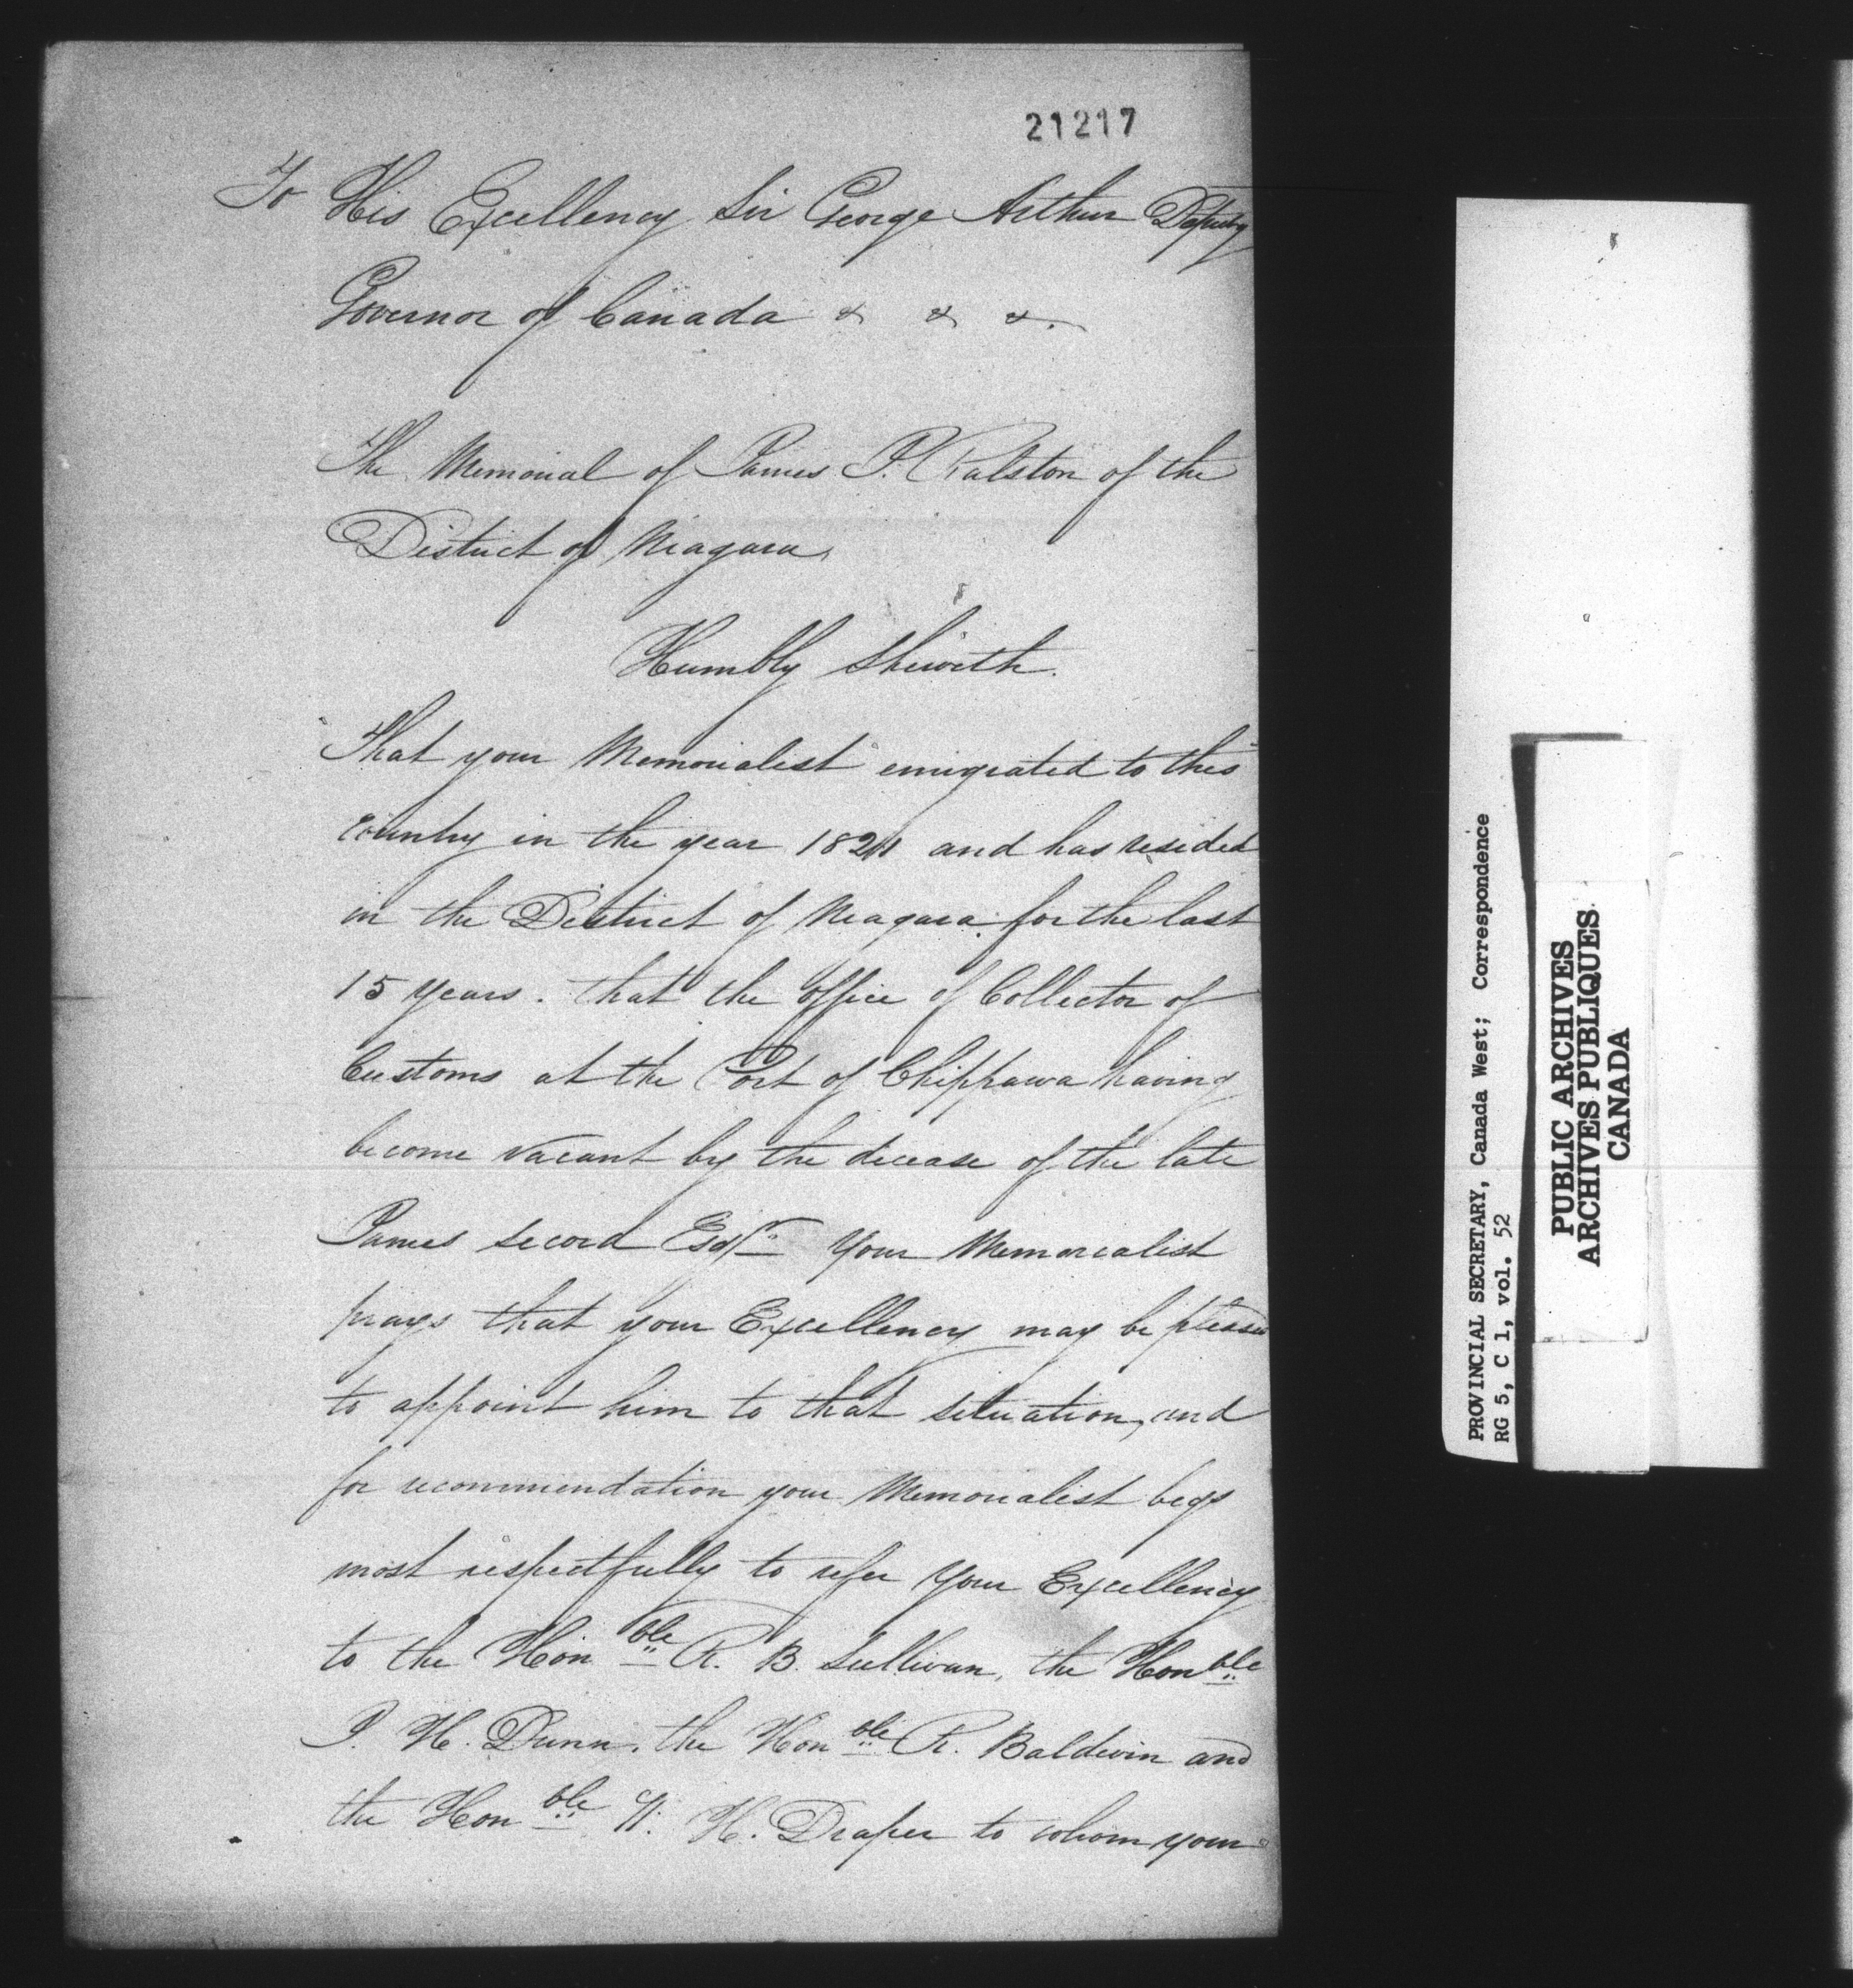 21217
To His Excellency Sir George Arthur Deputy
Governor of Canada & & &.
The Memorial of James J. Ralston of the
District of Niagara,
Humbly Sheweth.
That your Memorialist emigrated to this
country in the year and has resided
in the District of Niagara for the last
15 years. that the office of Collector of
Customs at the Port of Chippawa having
become vacant by the decease of the late
James Secord Esqr Your Memorialist
prays that your Excellency may be pleased
to appoint him to that situation, and
for recommendation your Memorialist begs
most respectfully to refer Your Excellency
to the Honble R. B. Sullivan, the Honble
J. H. Dunn, the Honble R. Baldwin and
the Honble W. H. Draper to whom your
PROVINCIAL SECRETARY, Canada West; Correspondence
RG 5, C 1, vol. 52
PUBLIC ARCHIVES
ARCHIVES PUBLIQUES
CANADA